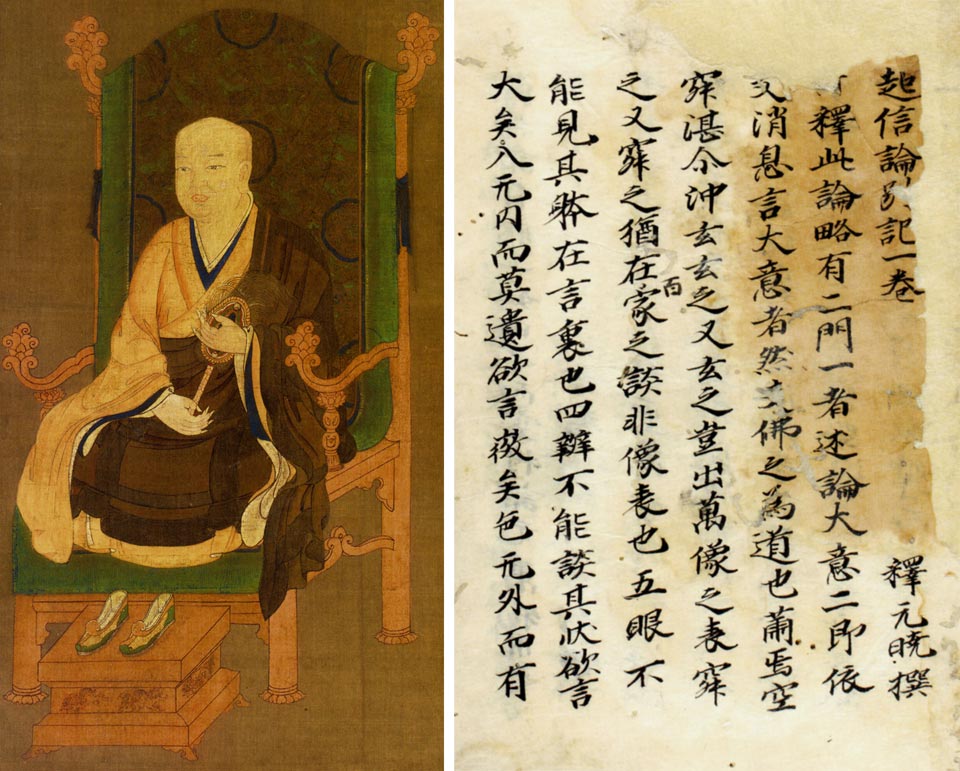 起信論別記一卷
釋元曉撰
釋此論略有二門一者述論大意二即依
文消息言大意者然夫佛之為道也蕭焉空
寂湛尒沖玄玄之又玄之豈出萬像之表寂
之又寂之猶在百家之談非像表也五眼不
能見其躰在言裏也四辯不能談其狀欲言
大矣入无內而莫遺欲言微矣苞无外而有